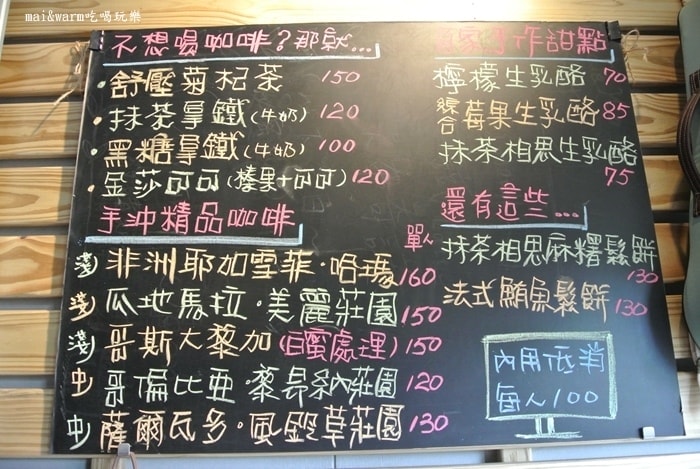 mai&warm吃喝玩樂
不想喝咖啡?那就...
舒壓菊杞茶 150
抹茶拿鐵(牛奶) 120
黑糖拿鐵(牛奶) 100
金莎可可(榛果+可可) 120
手沖精品咖啡
單人
(淺) 非洲耶加雪菲·哈瑪 160
(淺) 瓜地馬拉·美麗莊園 150
(淺) 哥斯大黎加(白蜜處理) 150
(中) 哥倫比亞·黎曼納莊園 120
(中) 薩爾瓦多·風鈴草莊園 130
自家手作甜點
檸檬生乳酪 70
綜合莓果生乳酪 85
抹茶相思生乳酪
75
還有這些...
抹茶相思麻糬鬆餅
130
法式鮪魚鬆餅 130
內用低消
每人100